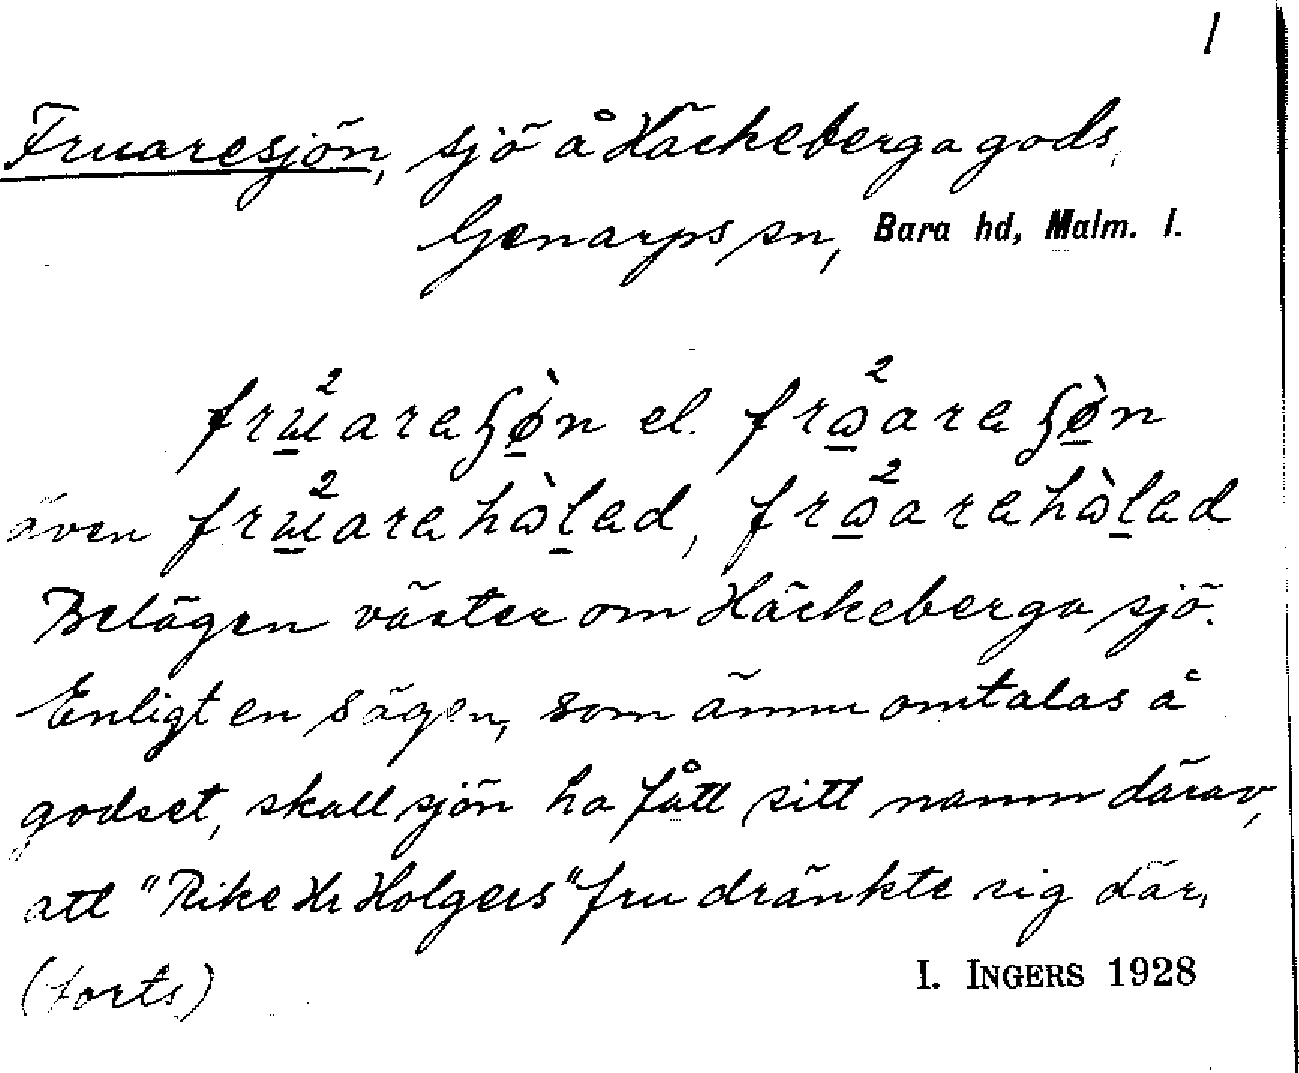 1
Fruaresjön, sjö å Häckeberga gods,
Genarps sn, Bara hd, Malm. l.
frɯ̲²areʃø̲̀n el. frɷ̲²areʃø̲̀n
även frɯ̲²arehɷ̀l̲ed, frɷ̲²arehɷ̀l̲ed
Belägen väster om Häckeberga sjö.
Enligt en sägen, som ännu omtalas å
godset, skall sjön ha fått sitt namn därav,
att "Rike Hr Holgers" fru dränkte sig där.
(forts)
I. INGERS 1928